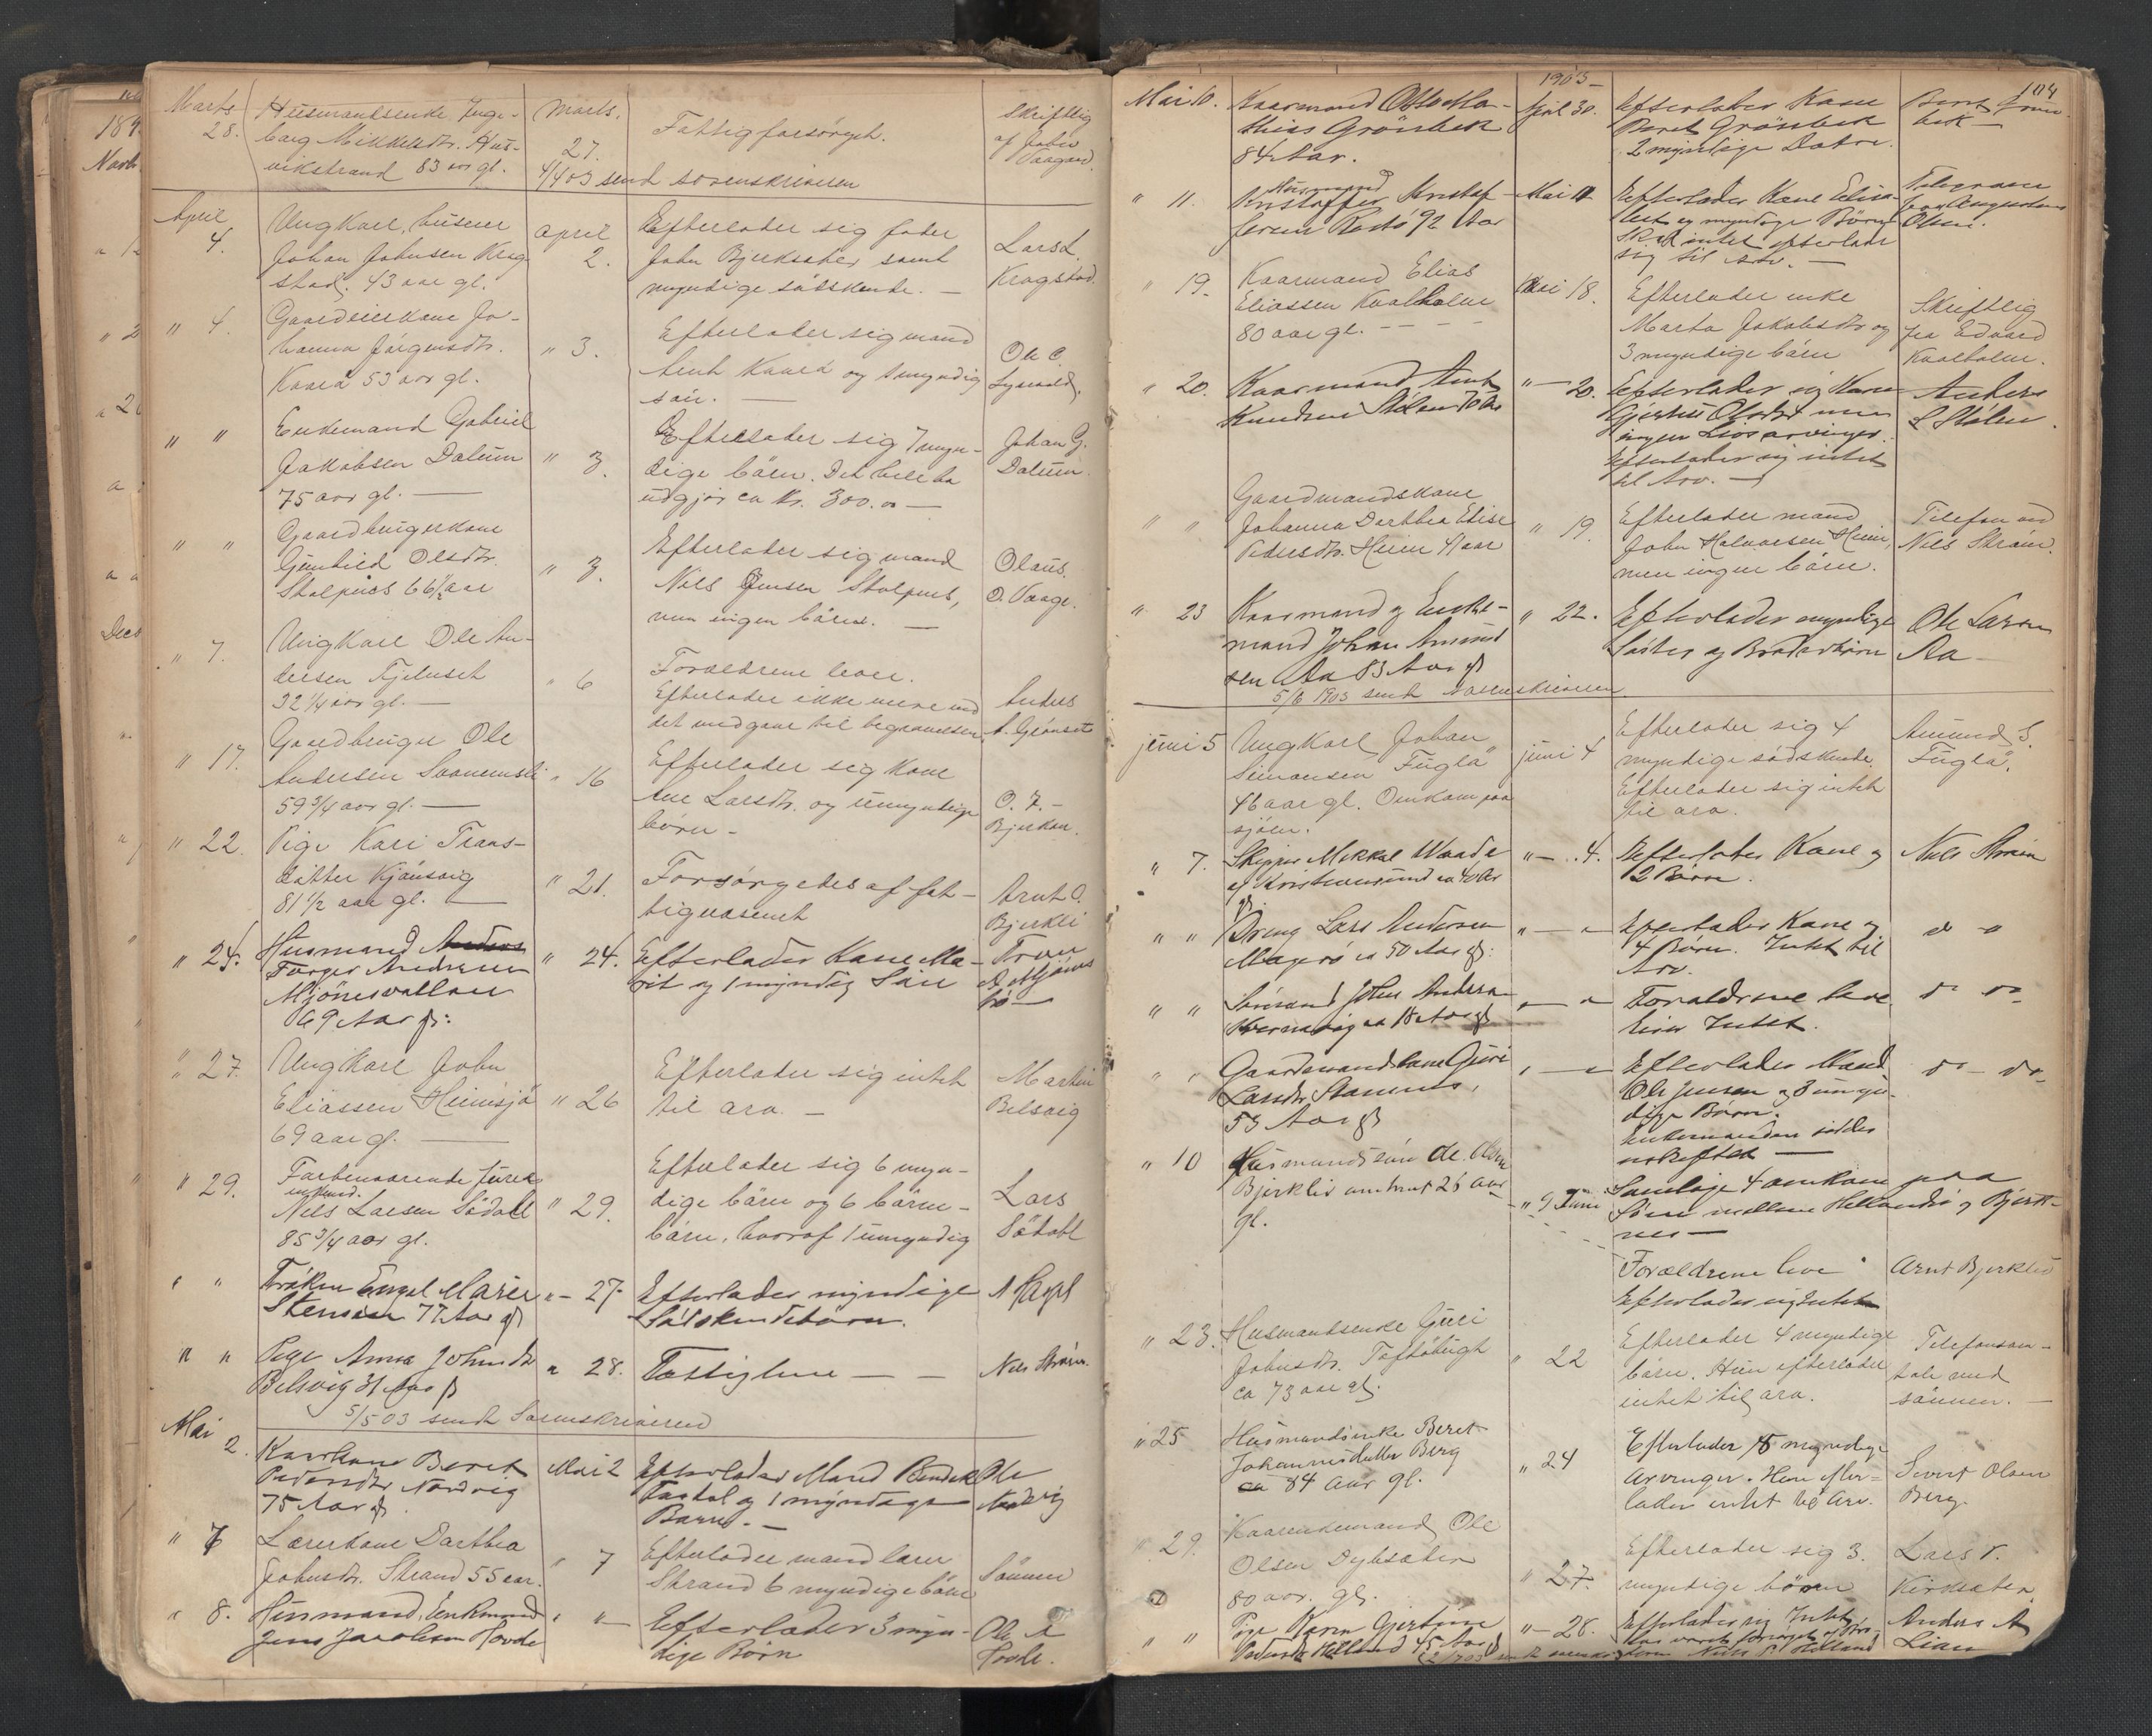 Marts
28.
Husmandsenke Inge-
borg Mikkelsdtr. Hus-
vikstrand 83 aar gl.
Marts.
27.
Fattigforsørget.
Skriftlig
af John
Vaagan
4/4 03 sendt sorenskriveren
April
4.
Ungkarl, husmer
Johan Johnsen Krog-
stad. 43 aar gl.
April
2.
Efterlader sig fader
John Bjerksæter samt
myndige sødskende. —
Lars L.
Krogstad.
" 4.
Gaardeierkone Jo-
hanna Jørgensdtr.
53 aar gl.
" 3.
Efterlader sig mand
Arnt og 1 myndig
søn. —
Ole C.
" "
Enkemand Gabriel
Jakobsen Dalum
75 aar gl. —
" 3.
Efterlader sig 7 myn-
dige børn. Det hele bo
udgjør ca Kr. 300.00 —
Johan G.
Dalum.
" "
Gaardbrugerkone
Gunhild Olsdtr.
Stolpnes 66 1/2 aar
" 3.
Efterlader sig mand
Nils Jensen Stolpnes,
men ingen børn. —
Olaus.
O. Vaage.
" 7.
Ungkarl Ole An-
dersen Fjeluset
32 1/4 aar gl. —
" 6
Forældrene lever.
Efterlader ikke mere end
det medgaar til begravelsen.
Anders
A. Grønset
" 17.
Gaardbruger Ole
Andersen
59 3/4 aar gl. —
" 16
Efterlader sig Kone
Ane Larsdtr. og umyndige
børn -
O. J. -
Bjerkan.
" 22.
Pige Kari Trons-
datter Kjønsvig
81 1/2 aar gl. —
" 21.
Forsørgedes af fat-
tigvæsenet
Arnt O.
Bjerkli
" 24.
Husmand Anders
Torger Andersen
Mjønesvollan
69 Aar gl:
" 24.
Efterlader Kone Ma-
rit og 1 myndig Søn
" 27.
Ungkarl John
Eliassen Heimsjø
69 aar gl. —
" 26
Efterlader sig intet
til arv. —
Martin
Belsvig
" 29.
Forhenværende
enkemd.
Nils Larsen Sødahl
85 3/4 aar gl.
" 29.
Efterlader sig 6 myn-
dige børn og 6 børne-
børn, hvoraf 1 umyndig
Lars
Södahl
" "
Frøken Engel Marie
Stensen 77 Aar gl
" – 27.
Efterlader myndige
Södskendebørn.
" "
Pige Anna Johnsdtr
Belsvig 31 Aar gl
" 28.
Fattiglem — —
Nils Strøm.
5/5 03 sendt Sorenskriveren
Mai
2.
Kaarkone Beret
Pedersdtr Nordvig
75 Aar gl.
Mai 2
Efterlader Mand Bendik
og 1 myndige
Barn. —
Ole
Nordvig
" 7
Lærerkone Dorthea
Johnsdtr. Strand 55 aar.
" 7
Efterlader mand lærer
Strand 6 myndige børn
Sønnen
" 8.
Husmand, Enkemand
Jens Jacobsen Hovde
" " –
Efterlader 3 myn-
dige Børn
Ole
Hovde.
1903 –
104
Mai 10.
Kaarmand Otto Ma-
thias Grönbek
84 Aar.
April 30.
Efterlader Kone
Beret Grönbek
2 myndige Døtre.
Bernt Grön-
bek —
" 11.
Husmand
Kristoffer Kristof-
fersen 92 Aar
Mai 11
Efterlader Kone Elisa-
bet og myndige Børn
Skal intet efterlade
sig til Arv. —
Telegram
fra Augustinus
Olsen.
" 19.
Kaarmand Elias
Eliassen Kvalholm
80 aar gl. – – –
Mai 18.
Efterlader enke
Marta Jakobsdtr og
3 myndige børn
Skriftlig
fra Edvard
Kvalholm.
" 20.
Kaarmand Arnt
Knudsen Stølen 70 Aar
" — 20.
Efterlader sig Kone
Gjertru Olsdtr men
ingen Livsarvinger.
Efterlader sig intet
til Arv. —
Anders
L Stølen.
" "
Gaardmandskone
Johanna Dorthea Elise
Pedersdtr. Heim 41 aar
" 19.
Efterlader mand
John Halvorsen Heim,
men ingen børn.
Telefon ved
Nils Strøm.
" 23
Kaarmand og Enke-
mand Johan Amund
sen Aa 83 Aar gl
" 22.
Efterlader myndige
Søster og Broderbørn
Ole Larsen
Aa –
5/6 1903 sendt Sorenskriveren.
Juni 5
Ungkarl Johan
Simonsen Fuglå
46 aar gl. Omkom paa
sjøen.
Juni 4
Efterlader sig 4
myndige sødskende.
Efterlader sig intet
til arv.
Amund S.
Fuglå.
" 7.
Skipper Mikkal Waade
af Kristiansund ca 40 Aar
gl.
" — 4.
Efterlader Kone og
12 Børn.
Nils Strøm
" "
Dreng Lars Andersen
Magerö ca 50 Aar gl:
" — "
Efterlader Kone og
4 Børn. Intet til
Arv.
do "
" "
John Andersen
ca 18 Aar gl
" — "
Forældrene leve
Eier Intet.
do do
" "
Gaardmandskone Guri
Larsdtr Stamnes,
53 Aar gl
" — "
Efterlader Mand
Ole Jensen og 3 umyn-
dige Børn.
Enkemanden sidder
uskiftet —
do – do
" 10
Husmandssøn Ole Olsen
Bjerkli omtrent 26 aar
gl.
" 9 Juni
Samlage 4 omkom paa
Søen mellem og Bjerk-
nes —
Forældrene leve
Efterlader sig Intet
Arnt Bjerkli
" 23.
Husmandsenke Guri
Johnsdtr.
ca 73 aar gl.
" 22
Efterlader 4 myndige
børn. Hun efterlader
intet til arv.
Telefonsam-
tale med
sønnen. —
" 25
Husmandsenke Beret
Johannesdatter Berg
ca 84 aar gl.
" 24
Efterlader 5 myndige
arvinger. Hun efter-
lader intet til Arv.
Sivert Olsen
Berg.
" 29.
Kaarenkemand Ole
Olsen Dybsæter
80 aar. gl.
" 27.
Efterlader sig 3.
myndige børn
Lars
Kirksæter
" "
Pige Karen Gjertine
Pedersdtr Helland 45 Aar gl
" – 28.
Efterlader sig Intet
har været forsørget af
Nils P. Helland
Anders A
Lian